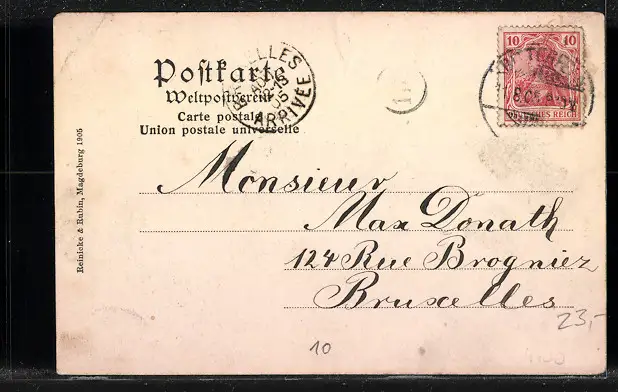 Postkarte
Weltpostverein
Carte postale
Union postale universelle
BRUXELLES
ARRIVÉE
10 10
DEUTSCHES REICH
Monsieur
Max Donath
124 Rue Brogniez
Bruxelles
23,-
10
Reinicke & Rubin, Magdeburg 1905